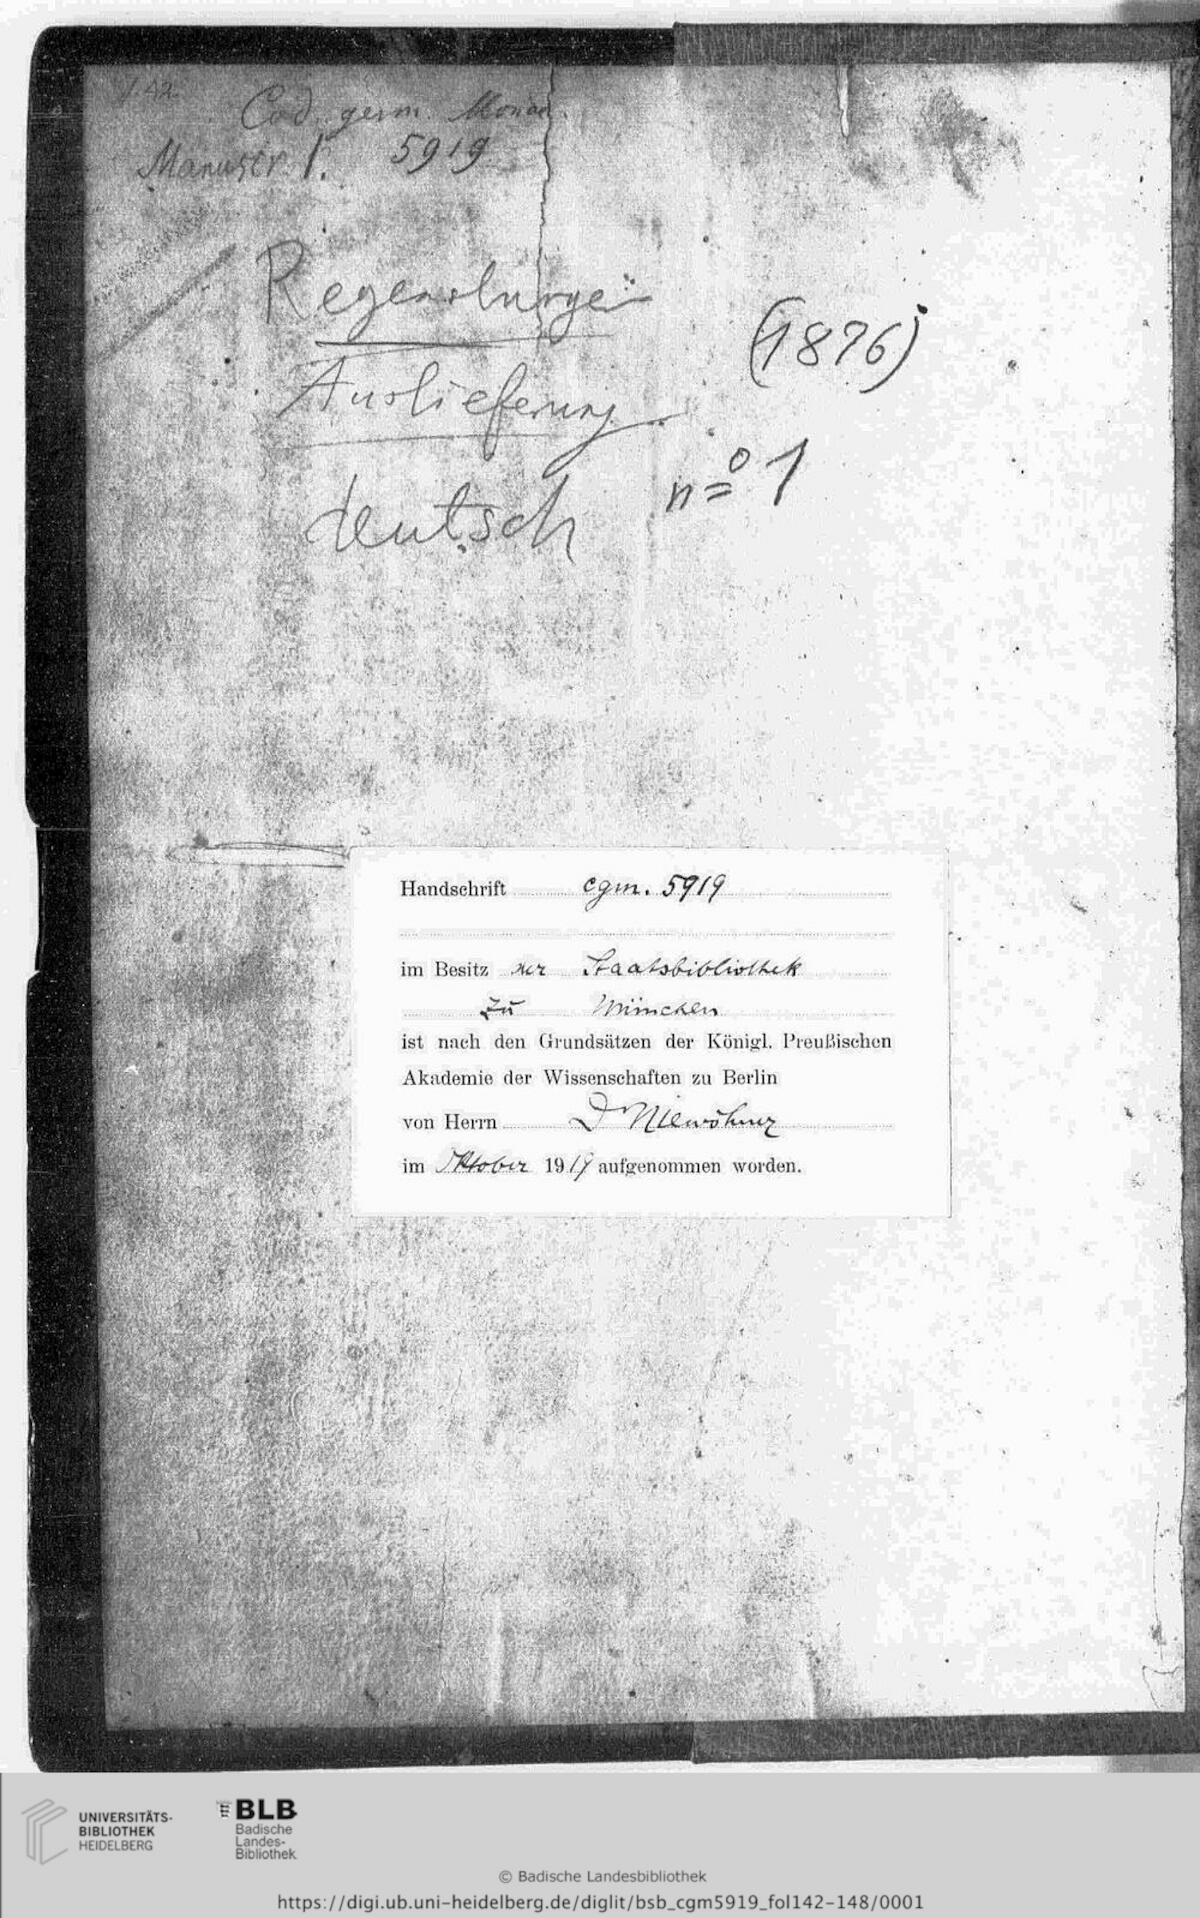 1.42
Cod. germ. Monac.
Manuscr. 1. 5919
Regensburger
Auslieferung
(1876)
nº 1
deutsch
Handschrift cgm. 5919
im Besitz der Staatsbibliothek
zu München
ist nach den Grundsätzen der Königl. Preußischen
Akademie der Wissenschaften zu Berlin
von Herrn Dr Niewöhner
im Oktober 1919 aufgenommen worden.
UNIVERSITÄTS-
BIBLIOTHEK
HEIDELBERG
BLB
Badische
Landes-
Bibliothek
© Badische Landesbibliothek
https://digi.ub.uni-heidelberg.de/diglit/bsb_cgm5919_fol142-148/0001